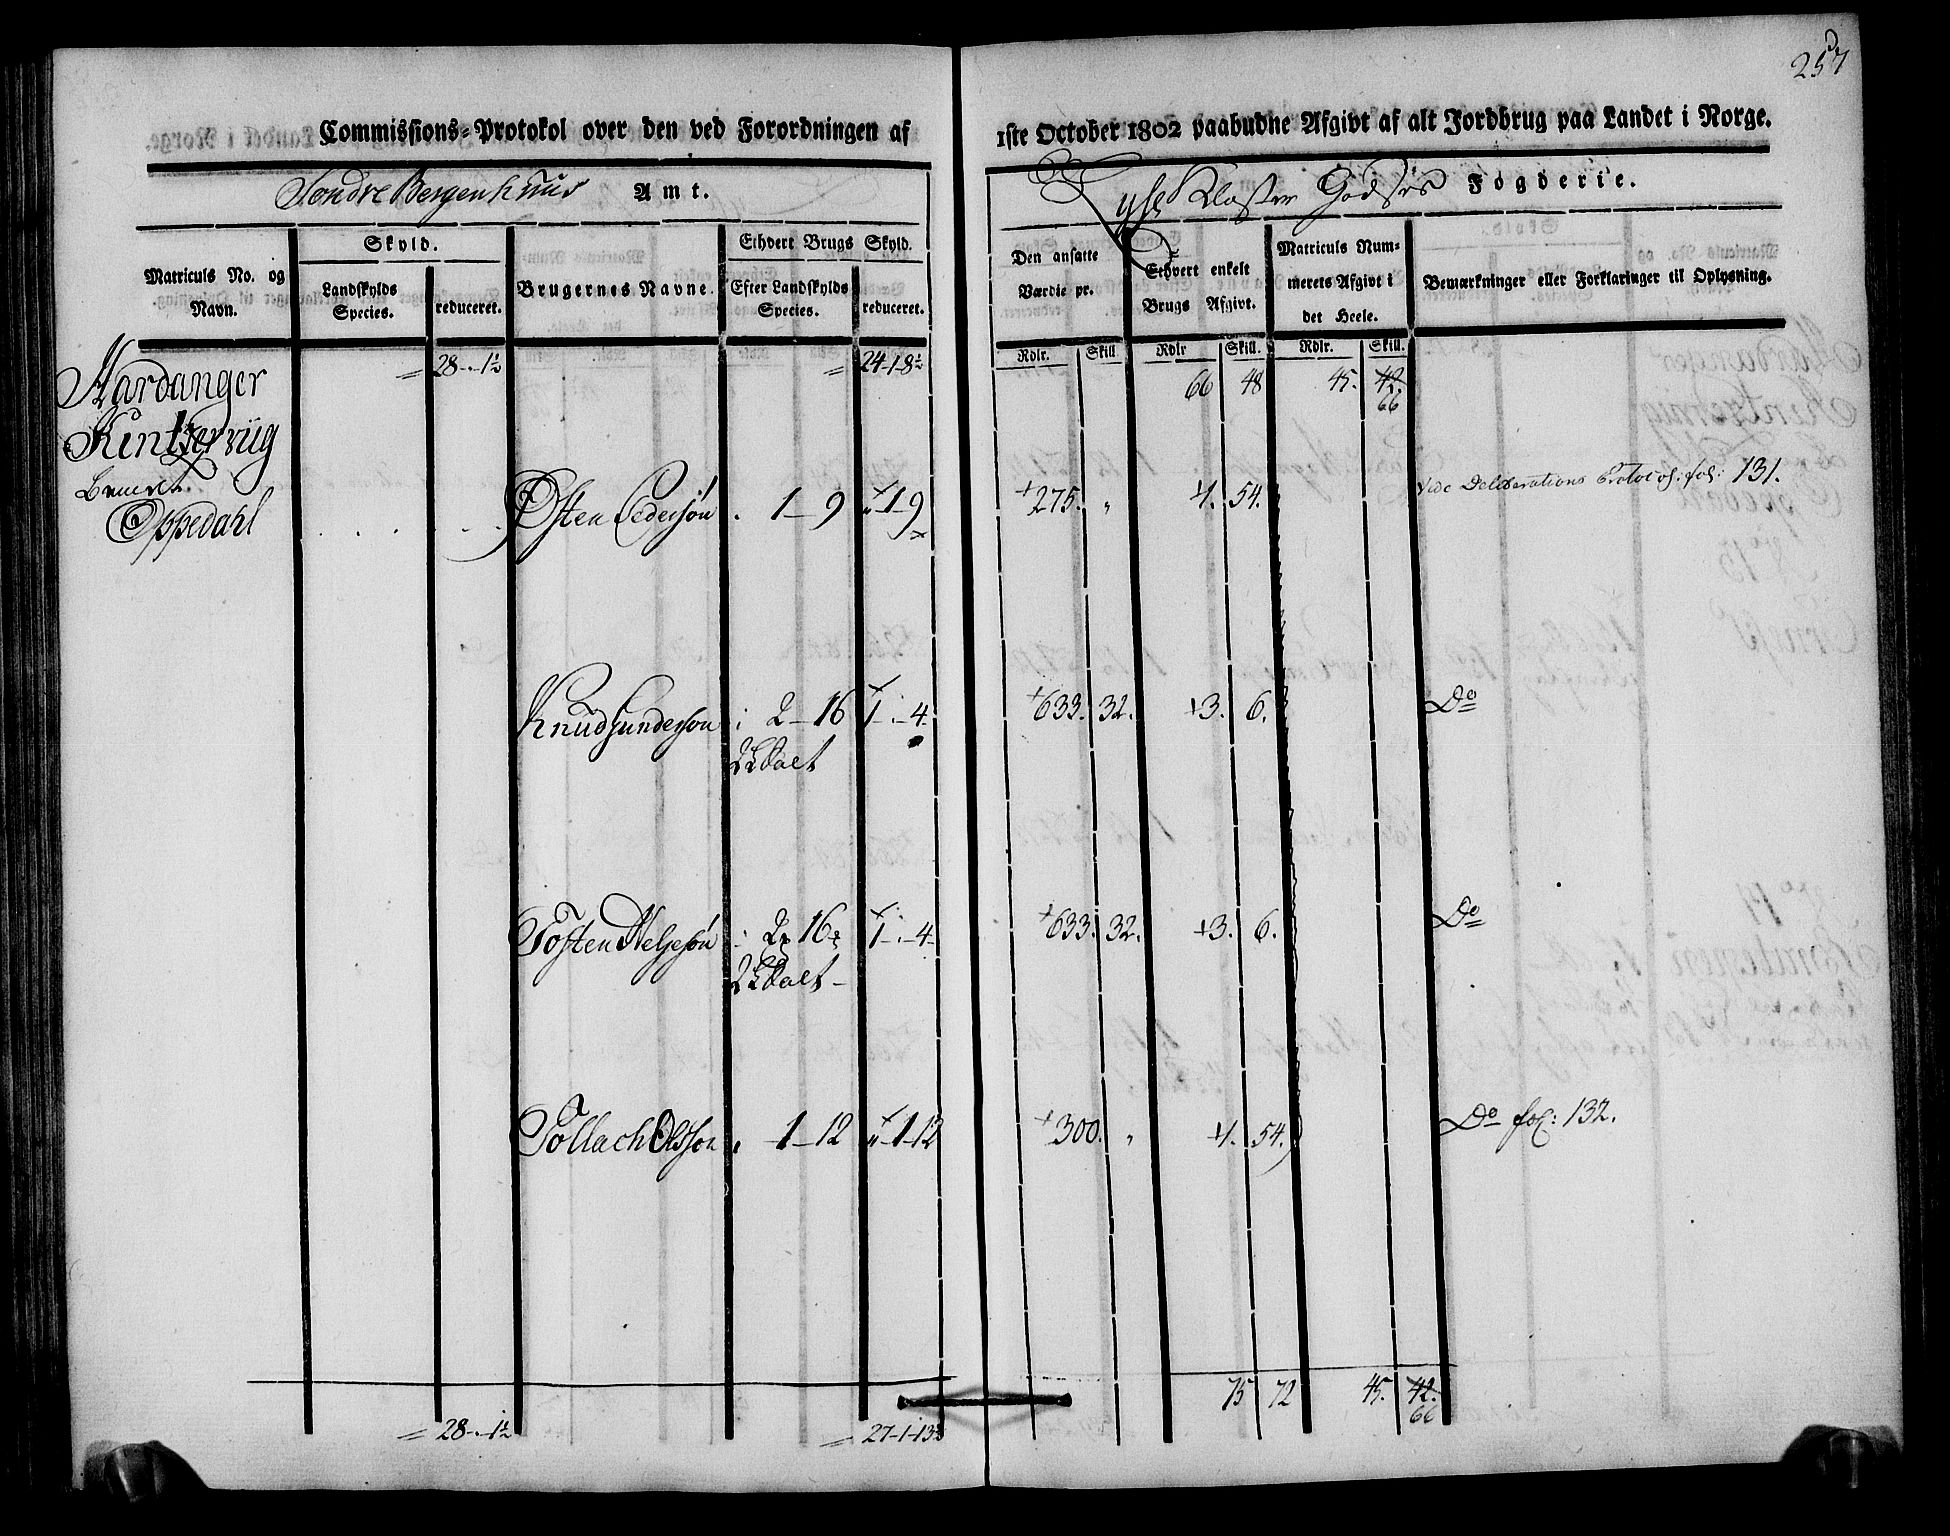 257
Commissions-Protokol over den ved Forordningen af 1ste October 1802 paabudne Afgivt af alt Jordbrug paa Landet i Norge.
Søndre Bergenhuus Amt.
Lyse Kloster Godses Fogderie.
Matriculs No. og Navn.
Skyld.
Landskylds Species.
reduceret.
Brugernes Navne.
Ethvert Brugs Skyld.
Efter Landskylds Species.
reduceret.
Den ansatte Værdie pr.
Ethvert enkelt Brugs Afgivt.
Matriculs Nummerets Afgivt i det Heele.
Bemærkninger eller Forklaringer til Oplysning.
Rdlr. Skill. Rdlr Skill. Rdlr. Skill.
Hardanger = 28-.-1½ = 24-1-8½ 66 48 45. 42. 66
Kintzerviig
Oppedahl
Østen Pedersøn . 1-9 "-1-9 275. " 1. 54. Vide Deliberations Protocol: fol: 131.
Knud Gundersøn : 2-16 1-.-4 633. 32. 3. 6. Do
2 ℔ Salt
Tosten Helgesøn : 2 16 1-.-4 633. 32. 3. 6. Do
2 ℔ Salt
Tollach Olsson " 1-12 "-1-12 300. " 1. 54. Do fol: 132.
75 72 45. 42. 66
= 28-.-1½ = 27-1-13½